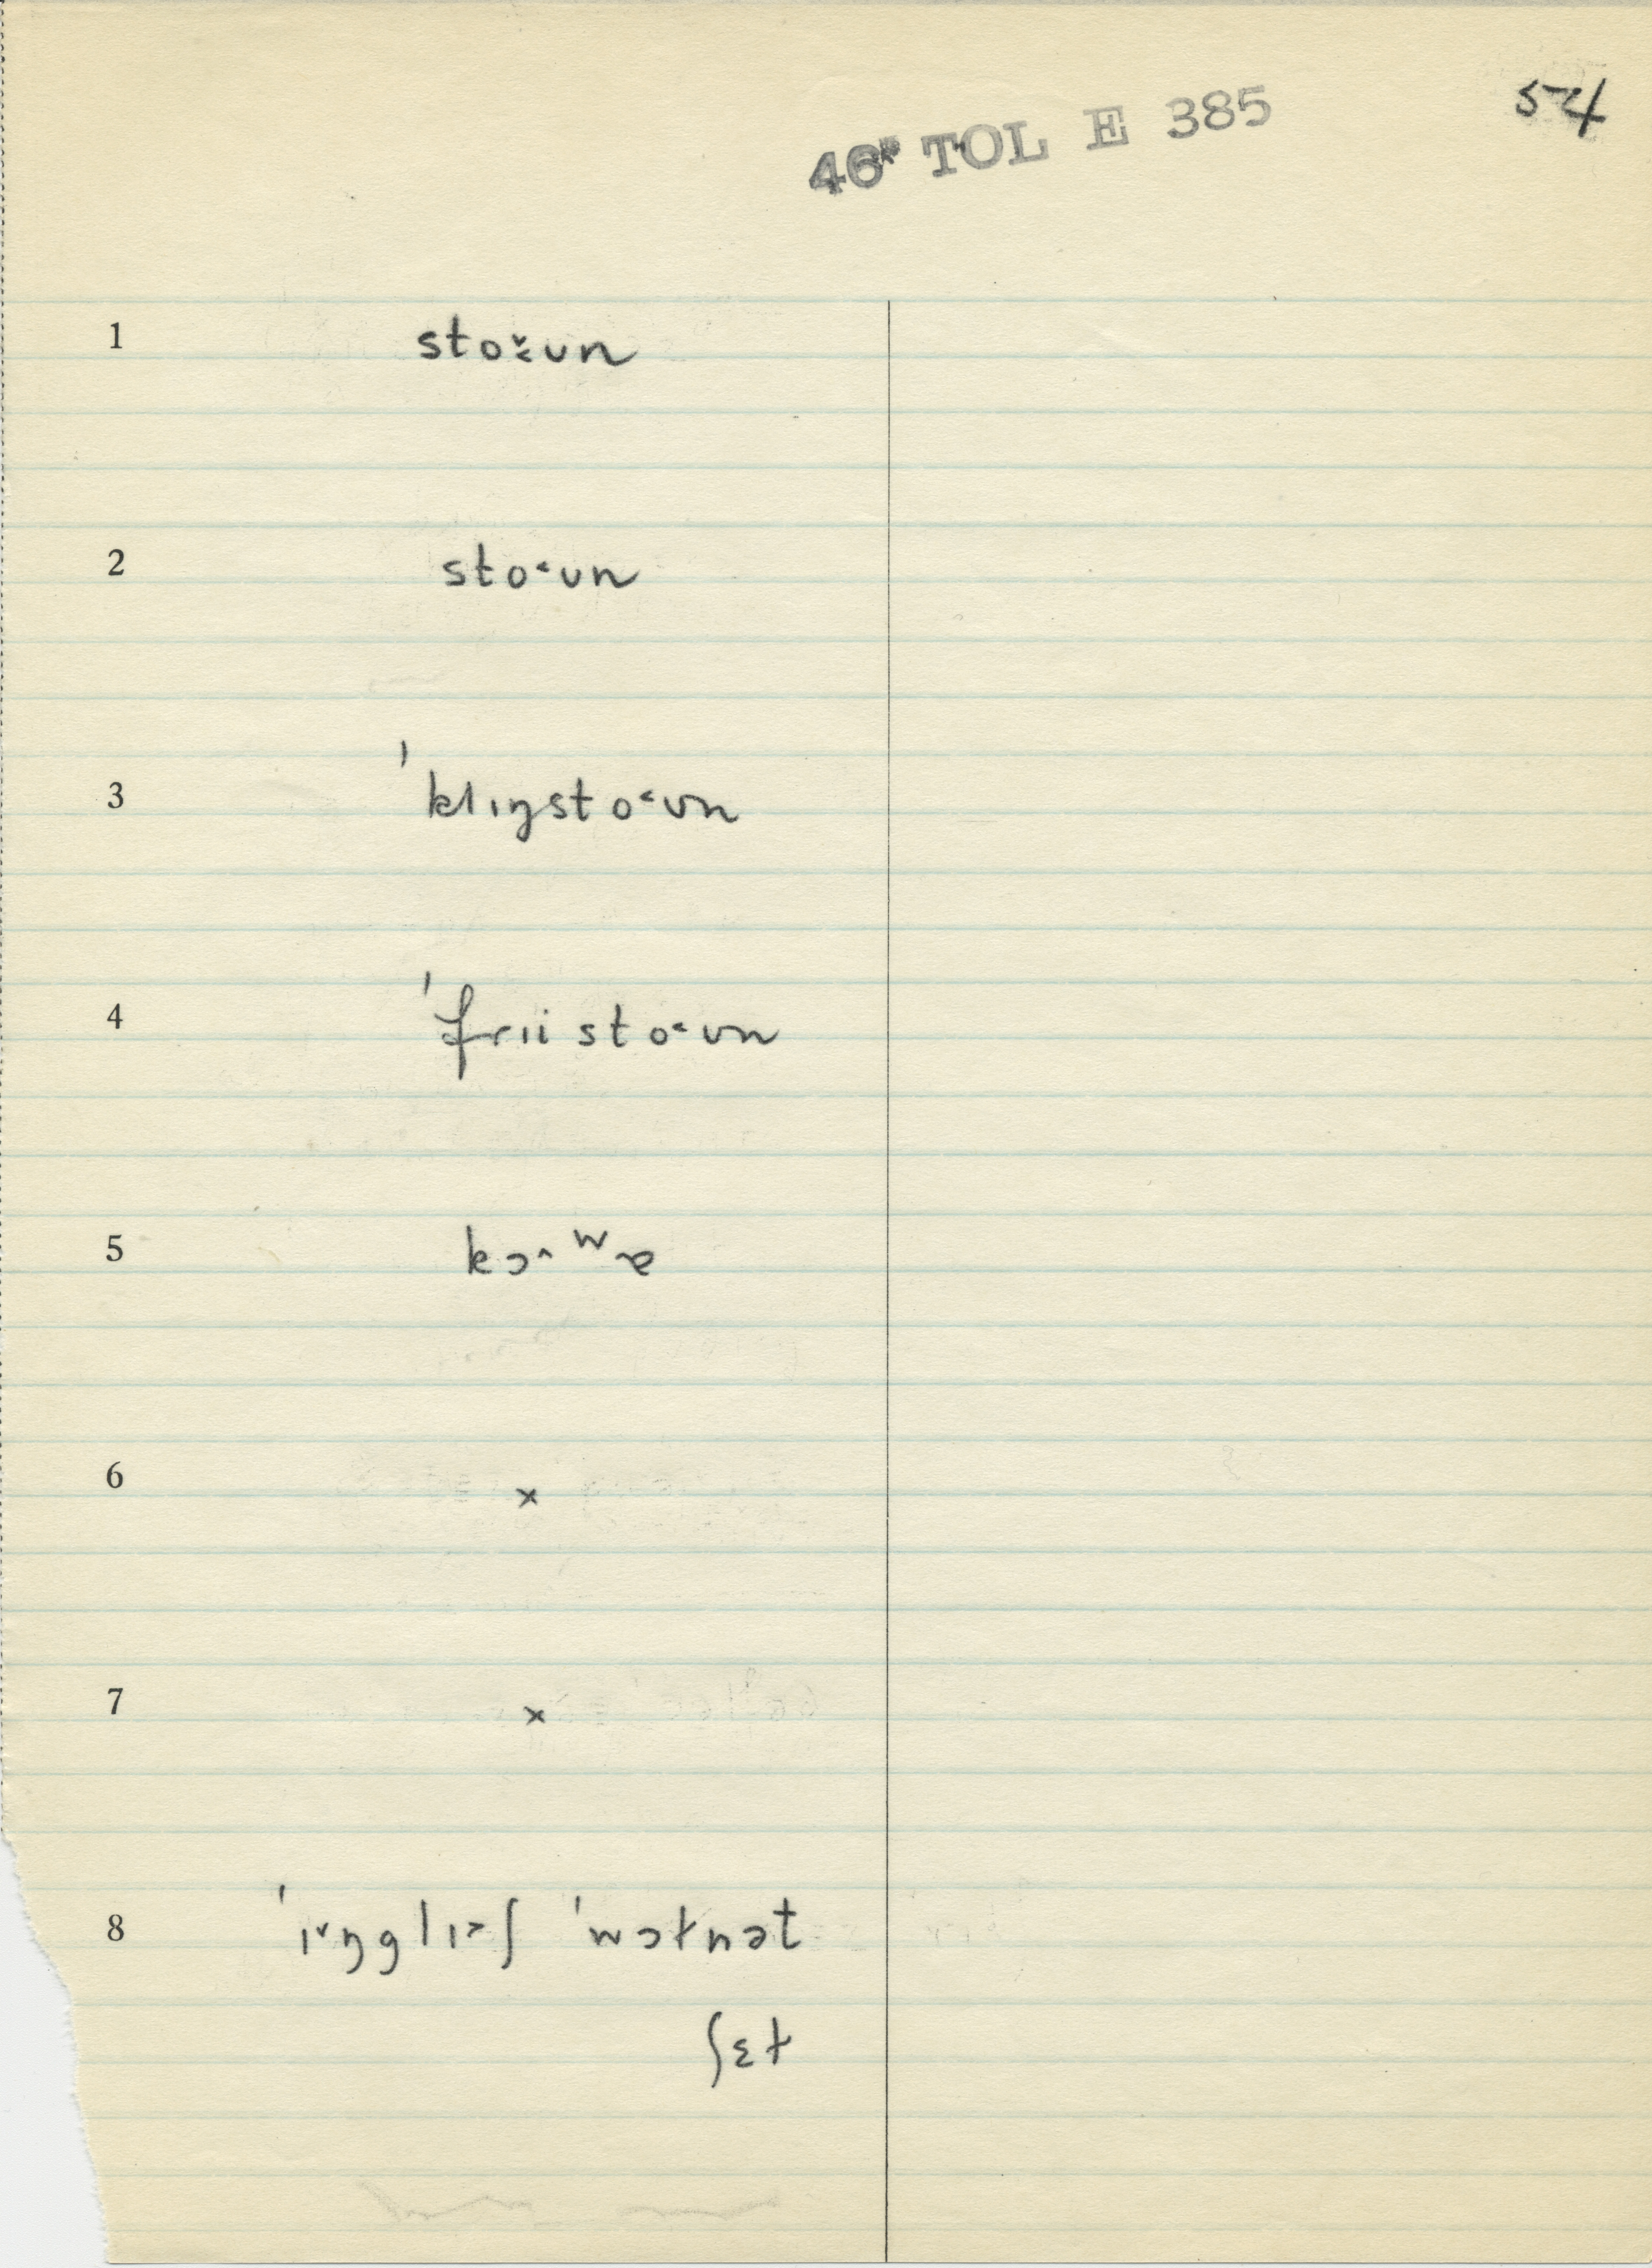 54
46* TOL E 385
1 sto˯˂ʊn
2 sto˂ʊn
3 ˈklɪŋsto˂ʊn
4 ˈfrɪisto˂ʊn
5 kɔ˄ʷɚ
6 x
7 x
8 ˈɪ˅ŋglɪ˃ʃ ˈwɔɫnət
ʃɛɫ